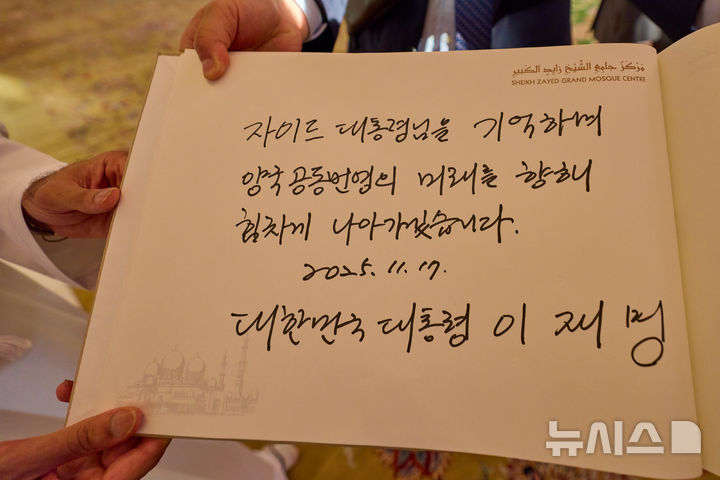 مركز جامع الشيخ زايد الكبير
SHEIKH ZAYED GRAND MOSQUE CENTRE
자이드 대통령님을 기억하며
양국 공동번영의 미래를 향해
힘차게 나아가겠습니다.
2025. 11. 17.
대한민국 대통령 이 재 명
뉴시스